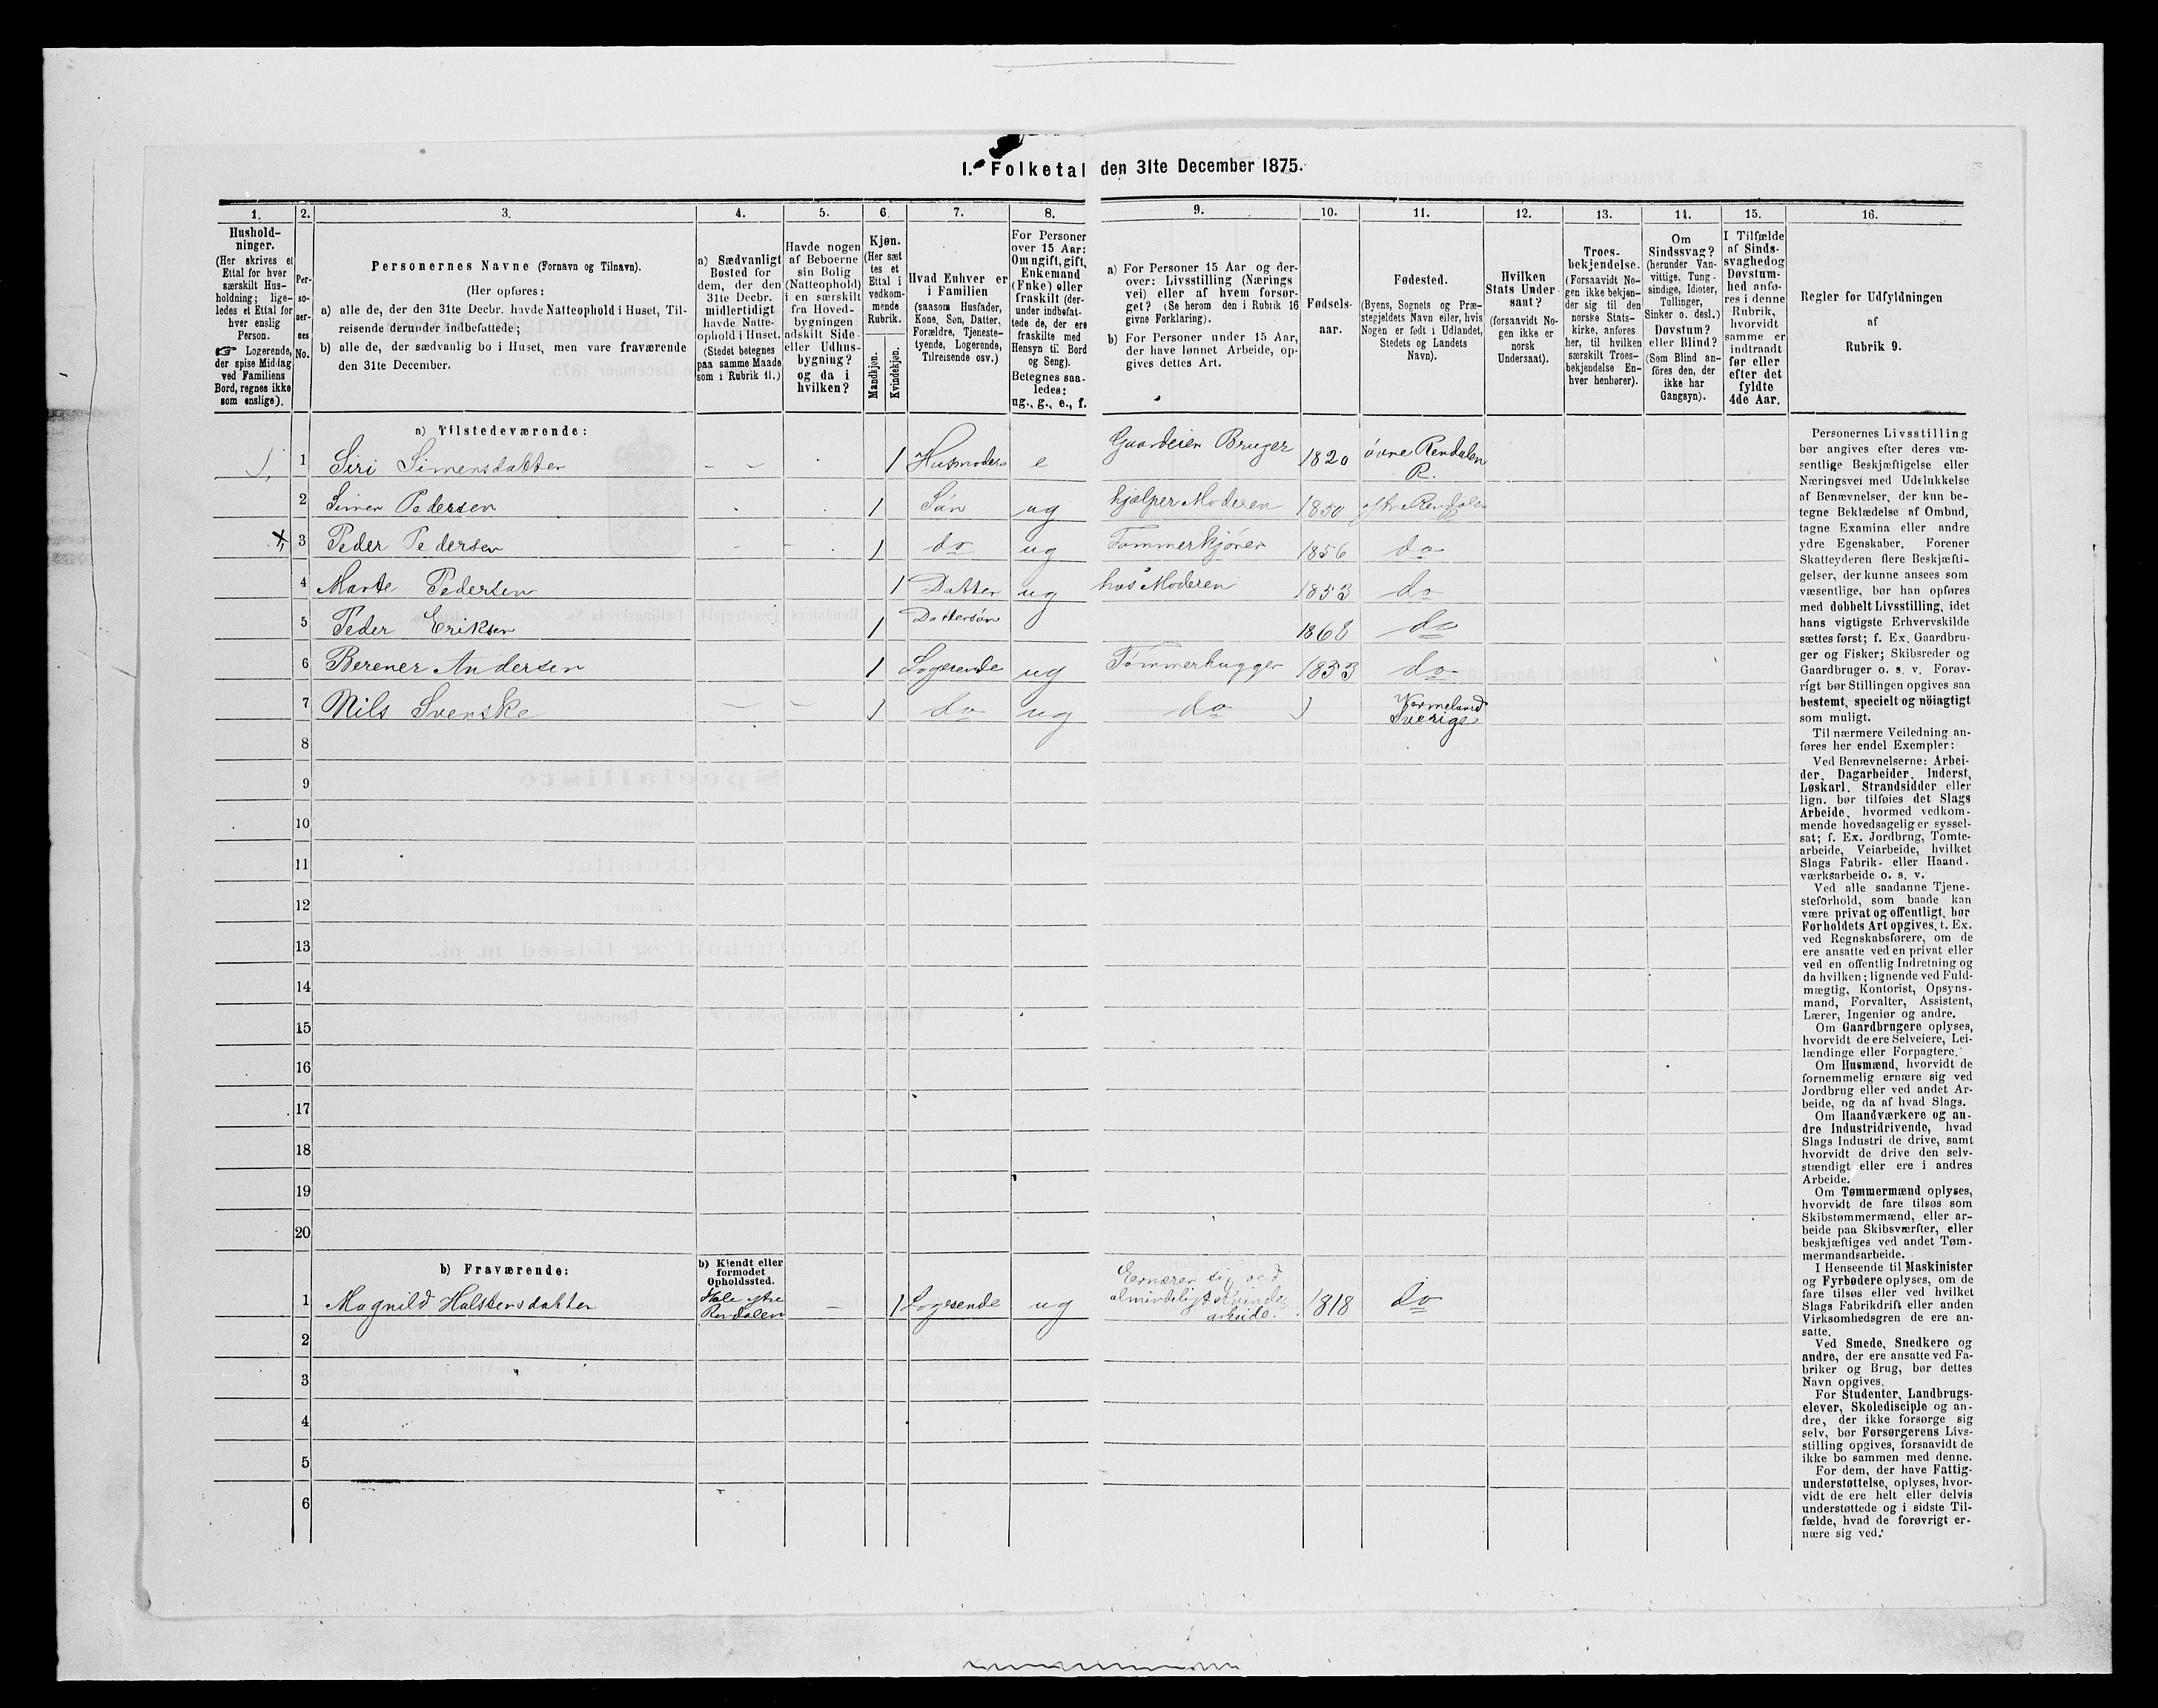 1. Folketal den 31te December 1875.
1. 2. 3. 4. 5. 6. 7. 8. 9. 10. 11. 12. 13. 14. 15. 16.
Hushold-
ninger.
(Her skrives et
Ettal for hver
særskilt Hus-
holdning; lige-
ledes et Ettal for
hver enslig
Person.
☞ Logerende,
der spise Middag
ved Familiens
Bord, regnes ikke
som enslige).
Per-
so-
ner-
nes
No.
Personernes Navne (Fornavn og Tilnavn).
(Her opføres:
a) alle de, der den 31te Decbr. havde Natteophold i Huset, Til-
reisende derunder indbefattede;
b) alle de, der sædvanlig bo i Huset, men vare fraværende
den 31te December.
a) Sædvanligt
Bosted for
dem, der den
31te Decbr.
midlertidigt
havde Natte-
ophold i Huset.
(Stedet betegnes
paa samme Maade
som i Rubrik 11.)
Havde nogen
af Beboerne
sin Bolig
(Natteophold)
i en særskilt
fra Hoved-
bygningen
adskilt Side-
eller Udhus-
bygning?
og da i
hvilken?
Kjøn.
(Her sæt-
tes et
Ettal i
vedkom-
mende
Rubrik.
Mandkjøn.
Kvindekjøn.
Hvad Enhver er
i Familien
(saasom Husfader,
Kone, Søn, Datter,
Forældre, Tjeneste-
tyende, Logerende,
Tilreisende osv.)
For Personer
over 15 Aar:
Om ugift, gift,
Enkemand
(Enke) eller
fraskilt (der-
under indbefat-
tede de, der ere
fraskilte med
Hensyn til Bord
og Seng).
Betegnes saa-
ledes:
ug., g., e., f.
a) For Personer 15 Aar og der-
over: Livsstilling (Nærings
vei) eller af hvem forsør-
get? (Se herom den i Rubrik 16
givne Forklaring).
b) For Personer under 15 Aar,
der have lønnet Arbeide, op-
gives dettes Art.
Fødsels-
aar.
Fødested.
(Byens, Sognets og Præ-
stegjeldets Navn eller, hvis
Nogen er født i Udlandet,
Stedets og Landets
Navn).
Hvilken
Stats Under-
saat?
(forsaavidt No-
gen ikke er
norsk
Undersaat).
Troes-
bekjendelse.
(Forsaavidt No-
gen ikke bekjen-
der sig til den
norske Stats-
kirke, anføres
her, til hvilken
særskilt Troes-
bekjendelse En-
hver henhører).
Om
Sindssvag?
(herunder Van-
vittige, Tung-
sindige, Idioter,
Tullinger,
Sinker o. desl.)
Døvstum?
eller Blind?
(Som Blind an-
föres den, der
ikke har
Gangsyn).
I Tilfælde
af Sinds-
svaghed og
Døvstum-
hed anfø-
res i denne
Rubrik,
hvorvidt
samme er
indtraadt
før eller
efter det
fyldte
4de Aar.
Regler for Udfyldningen
af
Rubrik 9.
a) Tilstedeværende:
1 Siri Simensdatter 1 Husmoder e Gaardeier Bruger 1820 övre Rendalen R.
2 Simen Pedersen 1 Sön ug hjælper Moderen 1850 Rendalen
3 Peder Pedersen 1 do ug Tømmerkjörer 1856 do
4 Marte Pedersen 1 Datter ug hos Moderen 1853 do
5 Peder Eriksen 1 Dattersön 1868 do
6 Berener Andersen 1 Logerende ug Tömmerhugger 1833 do
7 Nils Svenske 1 do ug do Vermeland
Sverige
8
9
10
11
12
13
14
15
16
17
18
19
20
b) Fraværende:
b) Kjendt eller
formodet
Opholdssted.
1 Magnild Halstensdatter ytre
Rendalen 1 Logerende ug Ernærer sig ved
almindeligt Kvinde-
arbeide. 1818 do
2
3
4
5
6
Personernes Livsstilling
bør angives efter deres væ-
sentlige Beskjæftigelse eller
Næringsvei med Udelukkelse
af Benævnelser, der kun be-
tegne Beklædelse af Ombud,
tagne Examina eller andre
ydre Egenskaber. Forener
Skatteyderen flere Beskjæfti-
gelser, der kunne ansees som
væsentlige, bør han opføres
med dobbelt Livsstilling, idet
hans vigtigste Erhvervskilde
sættes først; f. Ex. Gaardbru-
ger og Fisker; Skibsreder og
Gaardbruger o. s. v. Forøv-
rigt bør Stillingen opgives saa
bestemt, specielt og nöiagtigt
som muligt.
Til nærmere Veiledning an-
føres her endel Exempler:
Ved Benævnelserne: Arbei-
der, Dagarbeider, Inderst,
Løskarl, Strandsidder eller
lign. bør tilføies det Slags
Arbeide, hvormed vedkom-
mende hovedsagelig er syssel-
sat; f. Ex. Jordbrug, Tomte-
arbeide, Veiarbeide, hvilket
Slags Fabrik- eller Haand-
værksarbeide o. s. v.
Ved alle saadanne Tjene-
steforhold, som baade kan
være privat og offentligt, bør
Forholdets Art opgives, t. Ex.
ved Regnskabsførere, om de
ere ansatte ved en privat eller
ved en offentlig Indretning og
da hvilken; lignende ved Fuld-
mægtig, Kontorist, Opsyns-
mand, Forvalter, Assistent,
Lærer, Ingeniør og andre.
Om Gaardbrugere oplyses,
hvorvidt de ere Selveiere, Lei-
lændinge eller Forpagtere.
Om Husmænd, hvorvidt de
fornemmelig ernære sig ved
Jordbrug eller ved andet Ar-
beide, og da af hvad Slags.
Om Haandværkere og an-
dre Industridrivende, hvad
Slags Industri de drive, samt
hvorvidt de drive den selv-
stændigt eller ere i andres
Arbeide.
Om Tømmermænd oplyses,
hvorvidt de fare tilsøs som
Skibstømmermænd, eller ar-
beide paa Skibsværfter, eller
beskjæftiges ved andet Tøm-
mermandsarbeide.
I Henseende til Maskinister
og Fyrbødere oplyses, om de
fare tilsøs eller ved hvilket
Slags Fabrikdrift eller anden
Virksomhedsgren de ere an-
satte.
Ved Smede, Snedkere og
andre, der ere ansatte ved Fa-
briker og Brug, bør dettes
Navn opgives.
For Studenter, Landbrugs-
elever, Skoledisciple og an-
dre, der ikke forsørge sig
selv, bør Forsørgerens Livs-
stilling opgives, forsaavidt de
ikke bo sammen med denne.
For dem, der have Fattig-
understøttelse, oplyses, hvor-
vidt de ere helt eller delvis
understøttede og i sidste Til-
fælde, hvad de forøvrigt er-
nære sig ved.